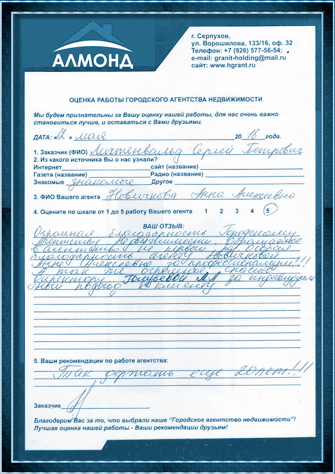 АЛМОНД
г. Серпухов,
ул. Ворошилова, 133/16, оф. 32
Телефон: +7 (926) 577-56-54;
e-mail: granit-holding@mail.ru
сайт: www.hgrant.ru
ОЦЕНКА РАБОТЫ ГОРОДСКОГО АГЕНТСТВА НЕДВИЖИМОСТИ
Мы будем признательны за Вашу оценку нашей работы, для нас очень важно
становиться лучше, и оставаться с Вами друзьями.
ДАТА: 22 мая 2018 года.
1. Заказчик (ФИО) Лихтенвальд Сергей Петрович
2. Из какого источника Вы о нас узнали?
Интернет сайт (название)
Газета (название) Радио (название)
Знакомые знакомые Другое
3. ФИО Вашего агента Новичкова Анна Алексеевна
4. Оцените по шкале от 1 до 5 работу Вашего агента 1 2 3 4 5
ВАШ ОТЗЫВ:
Огромная благодарность Городскому
Агентству Недвижимости.
благодарность агенту Новичковой
Анне Алексеевне за профессионализм!!!
А так же огромное спасибо
директору за индивидуаль
ный подход к клиенту
5. Ваши рекомендации по работе агентства:
Так держать еще 20 лет!!!
Заказчик
Благодарим Вас за то, что выбрали наше "Городское агентство недвижимости"!
Лучшая оценка нашей работы - Ваши рекомендации друзьям!